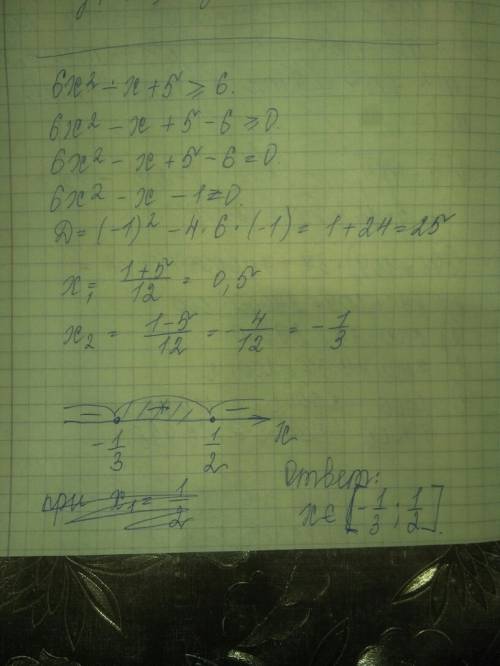 6x² - x + 5 ≥ 6.
6x² - x + 5 - 6 ≥ 0
6x² - x + 5 - 6 = 0.
6x² - x - 1 = 0.
D = (-1)² - 4·6·(-1) = 1 + 24 = 25
x₁ = (1+5)/12 = 0,5
x₂ = (1-5)/12 = -4/12 = -1/3
- + -
-1/3 1/2 x
при x₁ = 1/2
Ответ:
x ∈ [-1/3 ; 1/2].